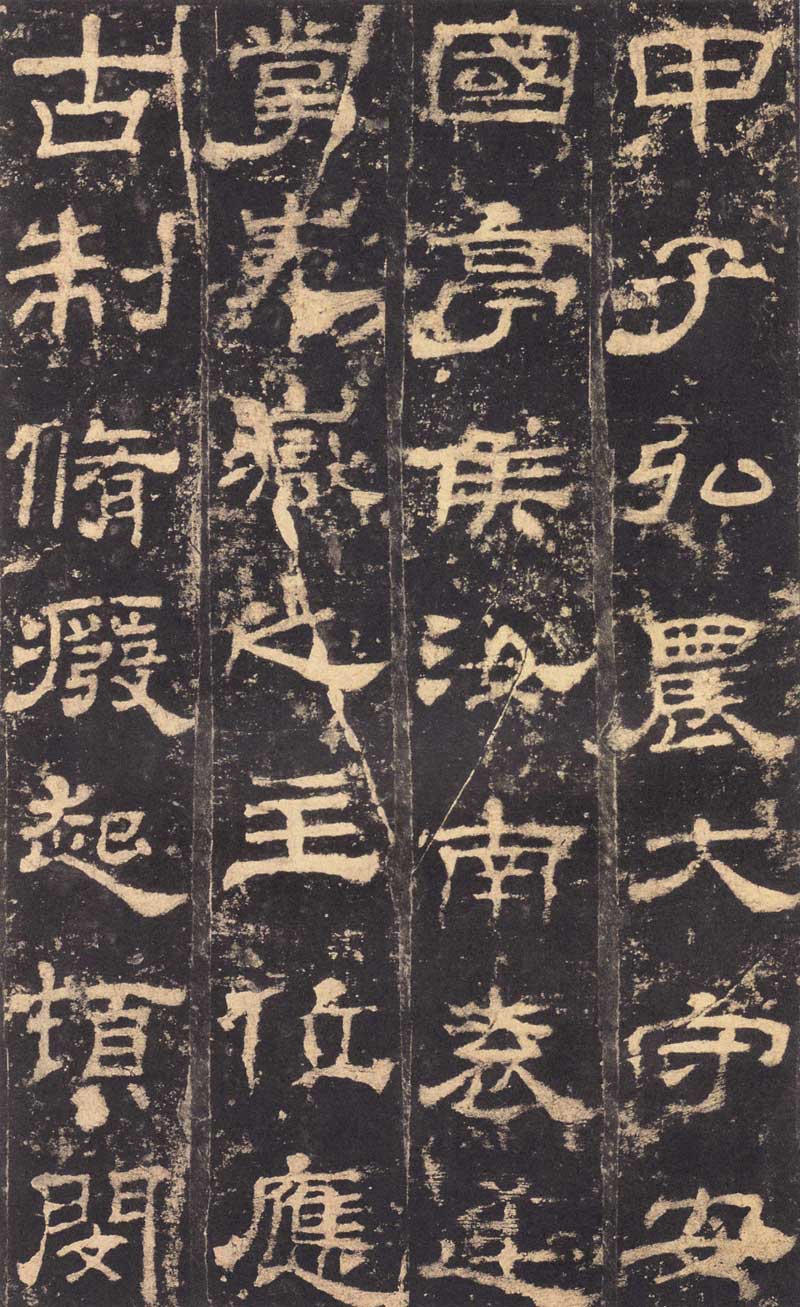 甲子弘農大守安
國亭侯汝南袁逢
掌華嶽之主位應
古制脩癈起頓閔